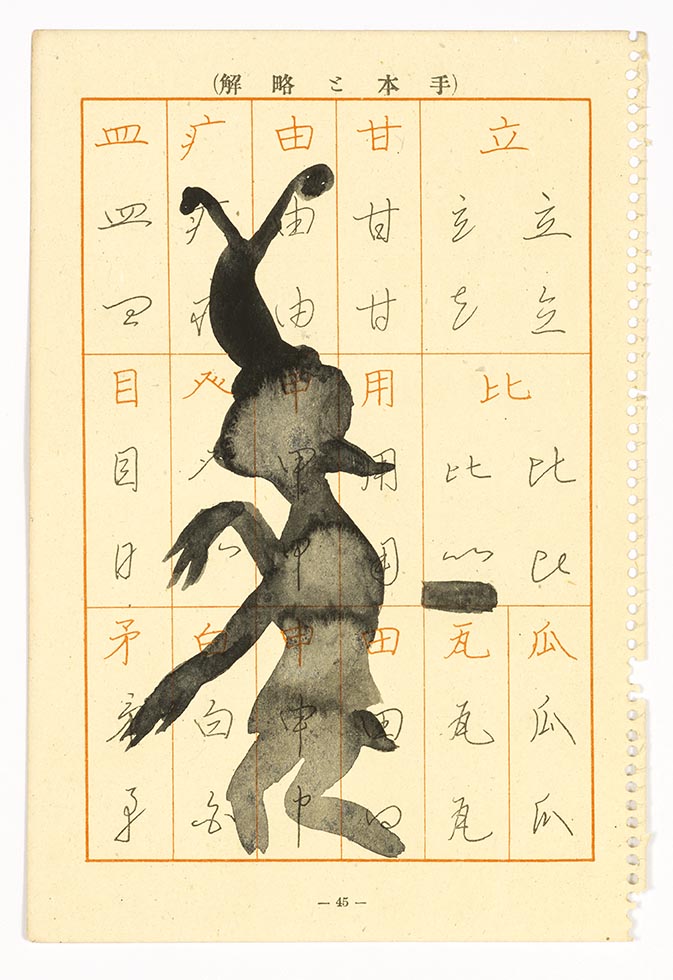 (手本と略解)
立
立立
立立
甘甘甘
由由由
疒疒疒
皿皿皿
比
比比
比比
用用用
甲甲甲
癶
目目目
瓜瓜瓜
瓦瓦瓦
田田田
申申申
白白白
矛矛矛
— 45 —